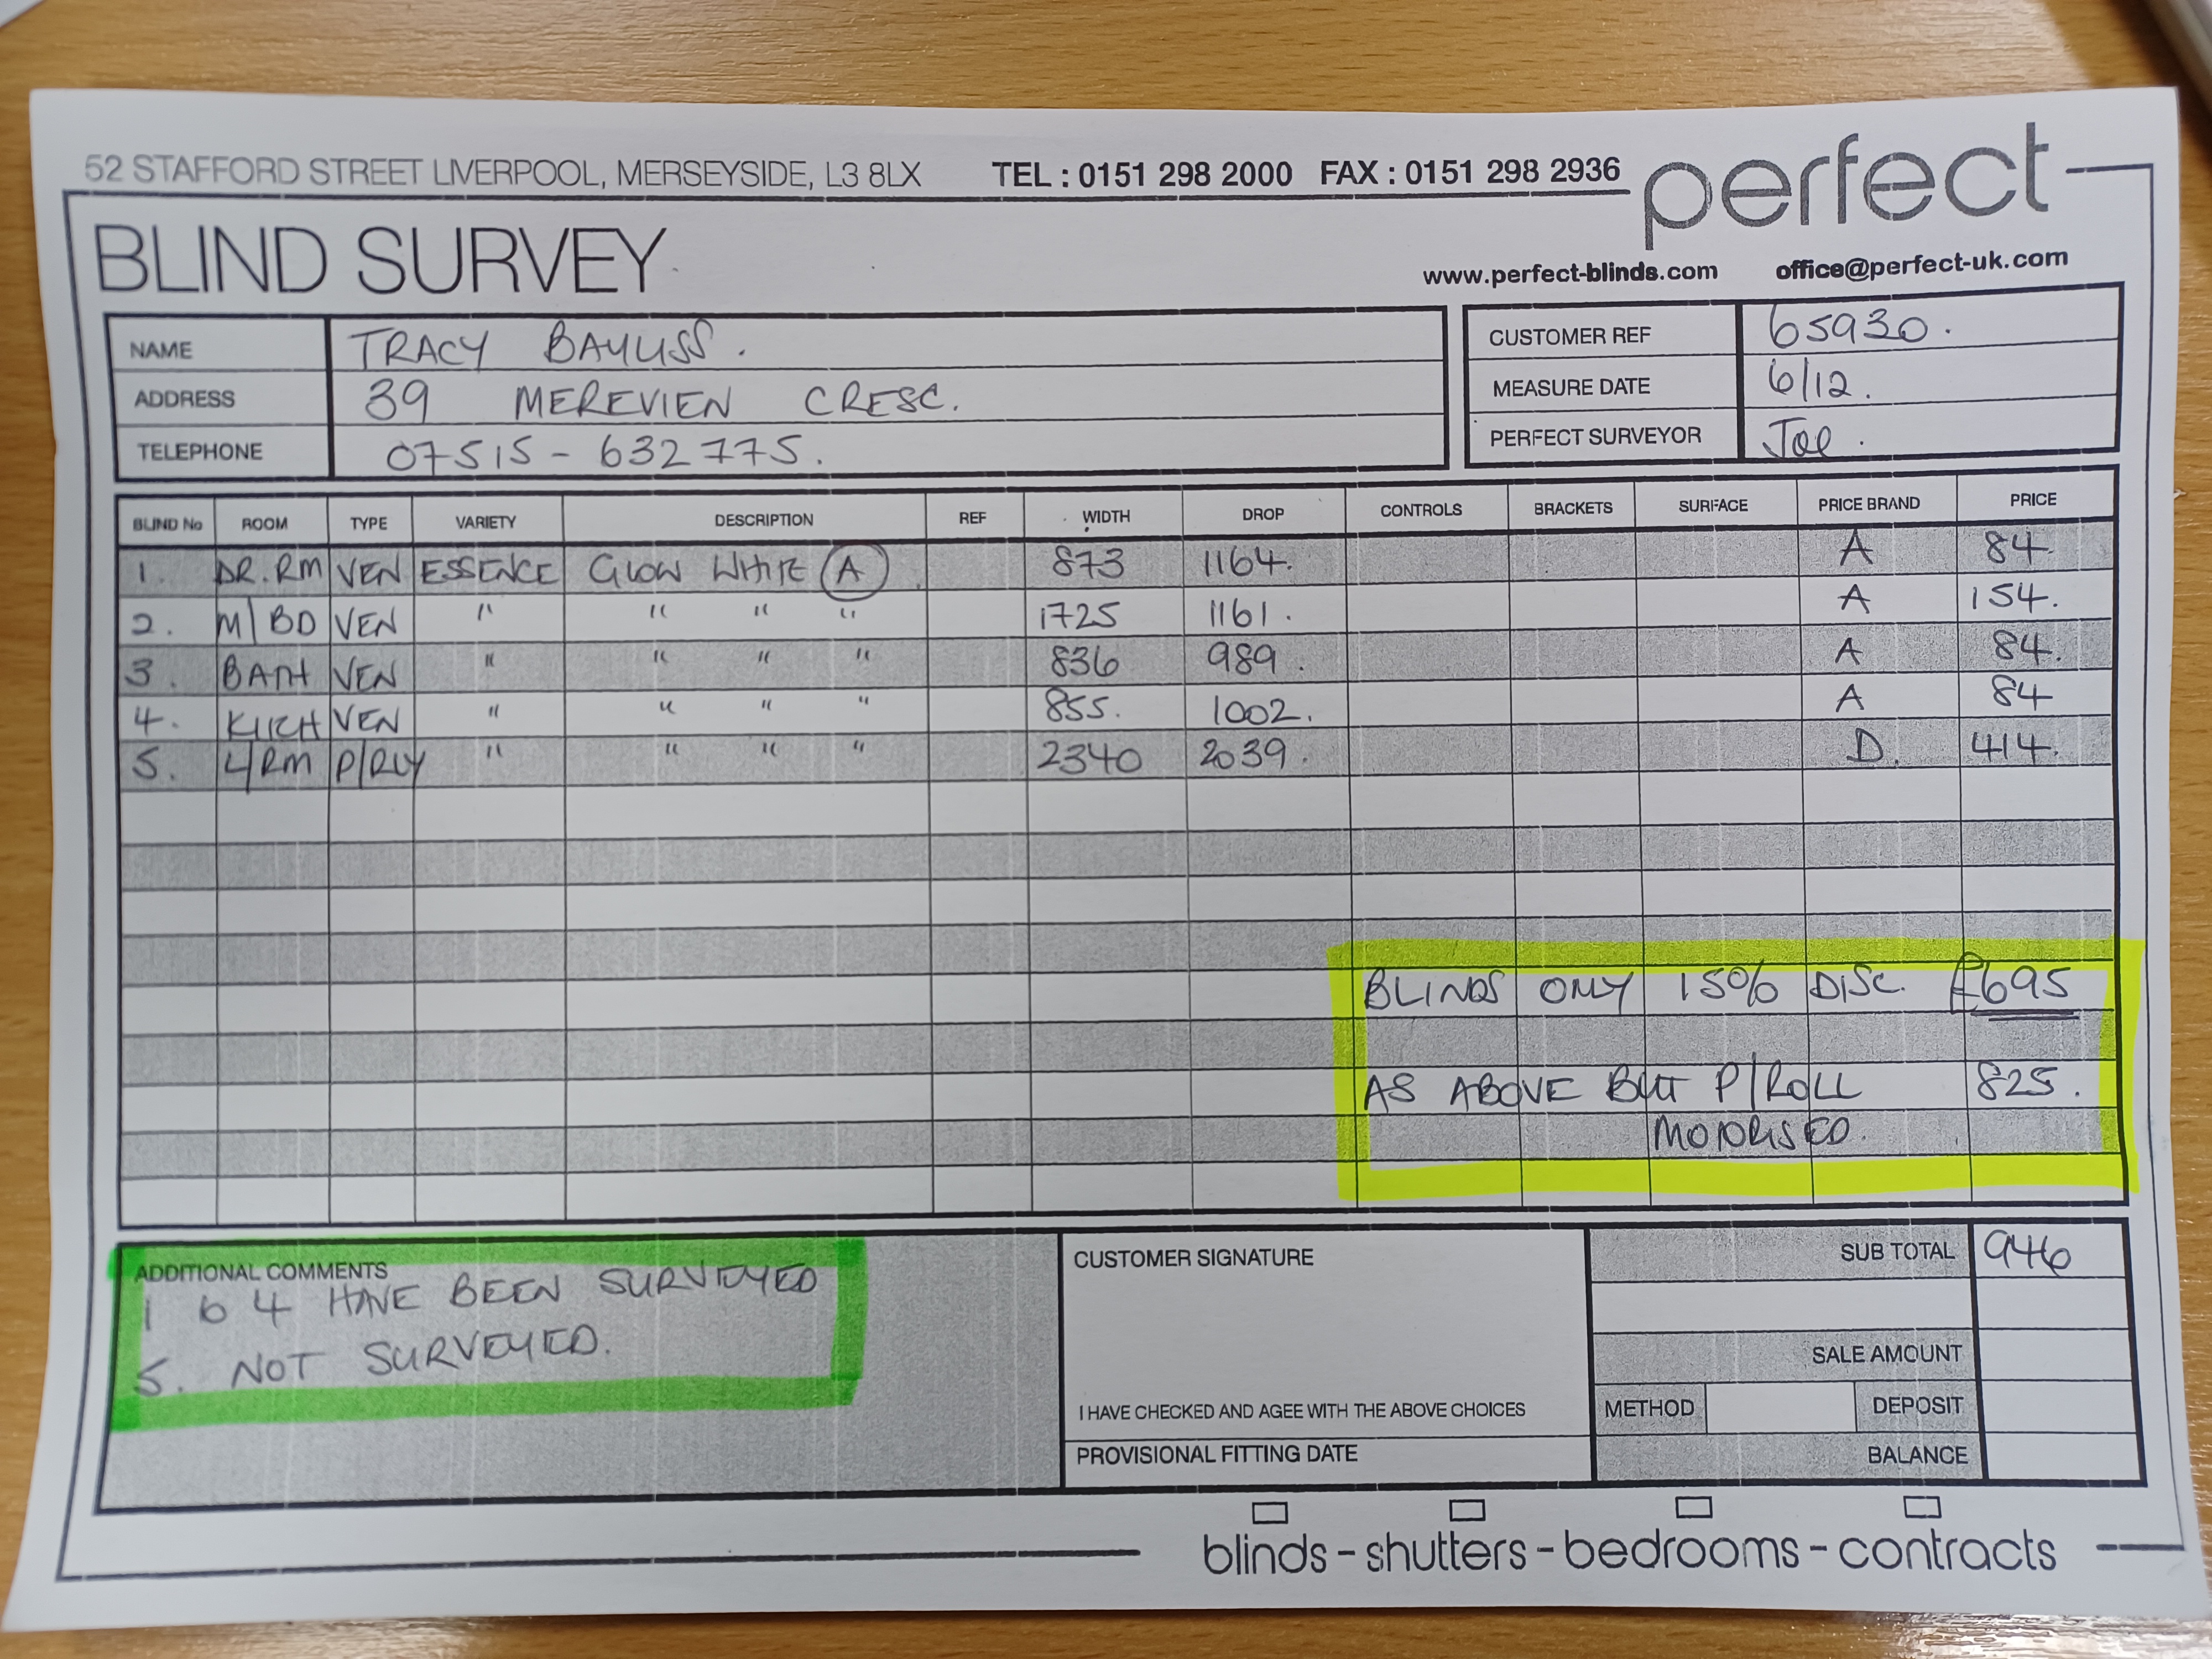 52 STAFFORD STREET LIVERPOOL, MERSEYSIDE, L3 8LX TEL : 0151 298 2000 FAX : 0151 298 2936 perfect
BLIND SURVEY
www.perfect-blinds.com office@perfect-uk.com
NAME TRACY BAYLISS. CUSTOMER REF 65930.
ADDRESS 39 MEREVIEN CRESC. MEASURE DATE 6/12.
TELEPHONE 07515-632775. PERFECT SURVEYOR Joe.
BLIND No ROOM TYPE VARIETY DESCRIPTION REF WIDTH DROP CONTROLS BRACKETS SURFACE PRICE BRAND PRICE
1. DR.RM VEN ESSENCE GLOW WHITE A 873 1164. A 84
2. M/BD VEN " " " " 1725 1161. A 154.
3. BATH VEN " " " " 836 989. A 84.
4. KITCH VEN " " " " 855. 1002. A 84
5. L/RM P/RLY " " " " 2340 2039. D. 414.
BLINDS ONLY 15% DISC. £695
AS ABOVE BUT P/ROLL 825.
MOTORISED.
ADDITIONAL COMMENTS
1 to 4 HAVE BEEN SURVEYED
5. NOT SURVEYED.
CUSTOMER SIGNATURE
I HAVE CHECKED AND AGEE WITH THE ABOVE CHOICES
PROVISIONAL FITTING DATE
SUB TOTAL 946
SALE AMOUNT
METHOD DEPOSIT
BALANCE
blinds - shutters - bedrooms - contracts